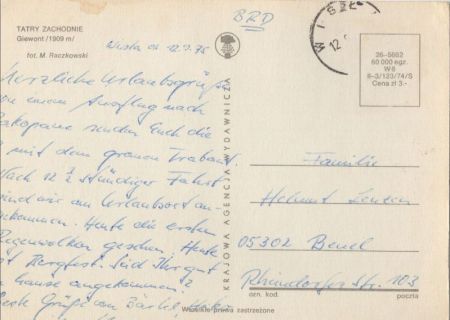 TATRY ZACHODNIE
Giewont /1909 m/
fot. M. Raczkowski
BRD
12.9.76
Herzliche Urlaubsgrüße
von einem Ausflug nach
Zakopane senden Euch die
2 mit dem grauen Trabant.
Nach 12 ½ stündiger Fahrt
sind wir am Urlaubsort an-
gekommen. Heute die ersten
Regenwolken gesehen. Heute
ist Bergfest. Seid Ihr gut
zu Hause angekommen?
Beste Grüße an Bärbel,
KRAJOWA AGENCJA WYDAWNICZA
12
26-5662
60 000 egz.
W8
R-3/123/74/S
Cena zł 3.-
Familie
Helmut
05302 Beuel
Rheindorfer Str. 103
ozn. kod.
poczta
Wszelkie prawa zastrzeżone